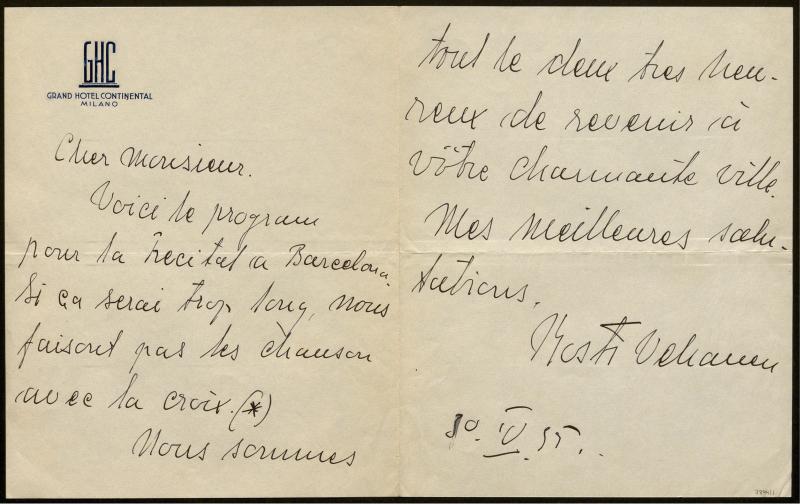 GHC
GRAND HOTEL CONTINENTAL
MILANO
Cher Monsieur.
Voici le program
pour la Recital a Barcelona.
Si ça serai trop long, nous
faisont pas les chanson
avec la croix. (*)
Nous sommes
tout le deux tres heu-
reux de revenir à
vôtre charmante ville.
Mes meilleures salu-
tations,
Kosti Vehanen
30. IV 35.